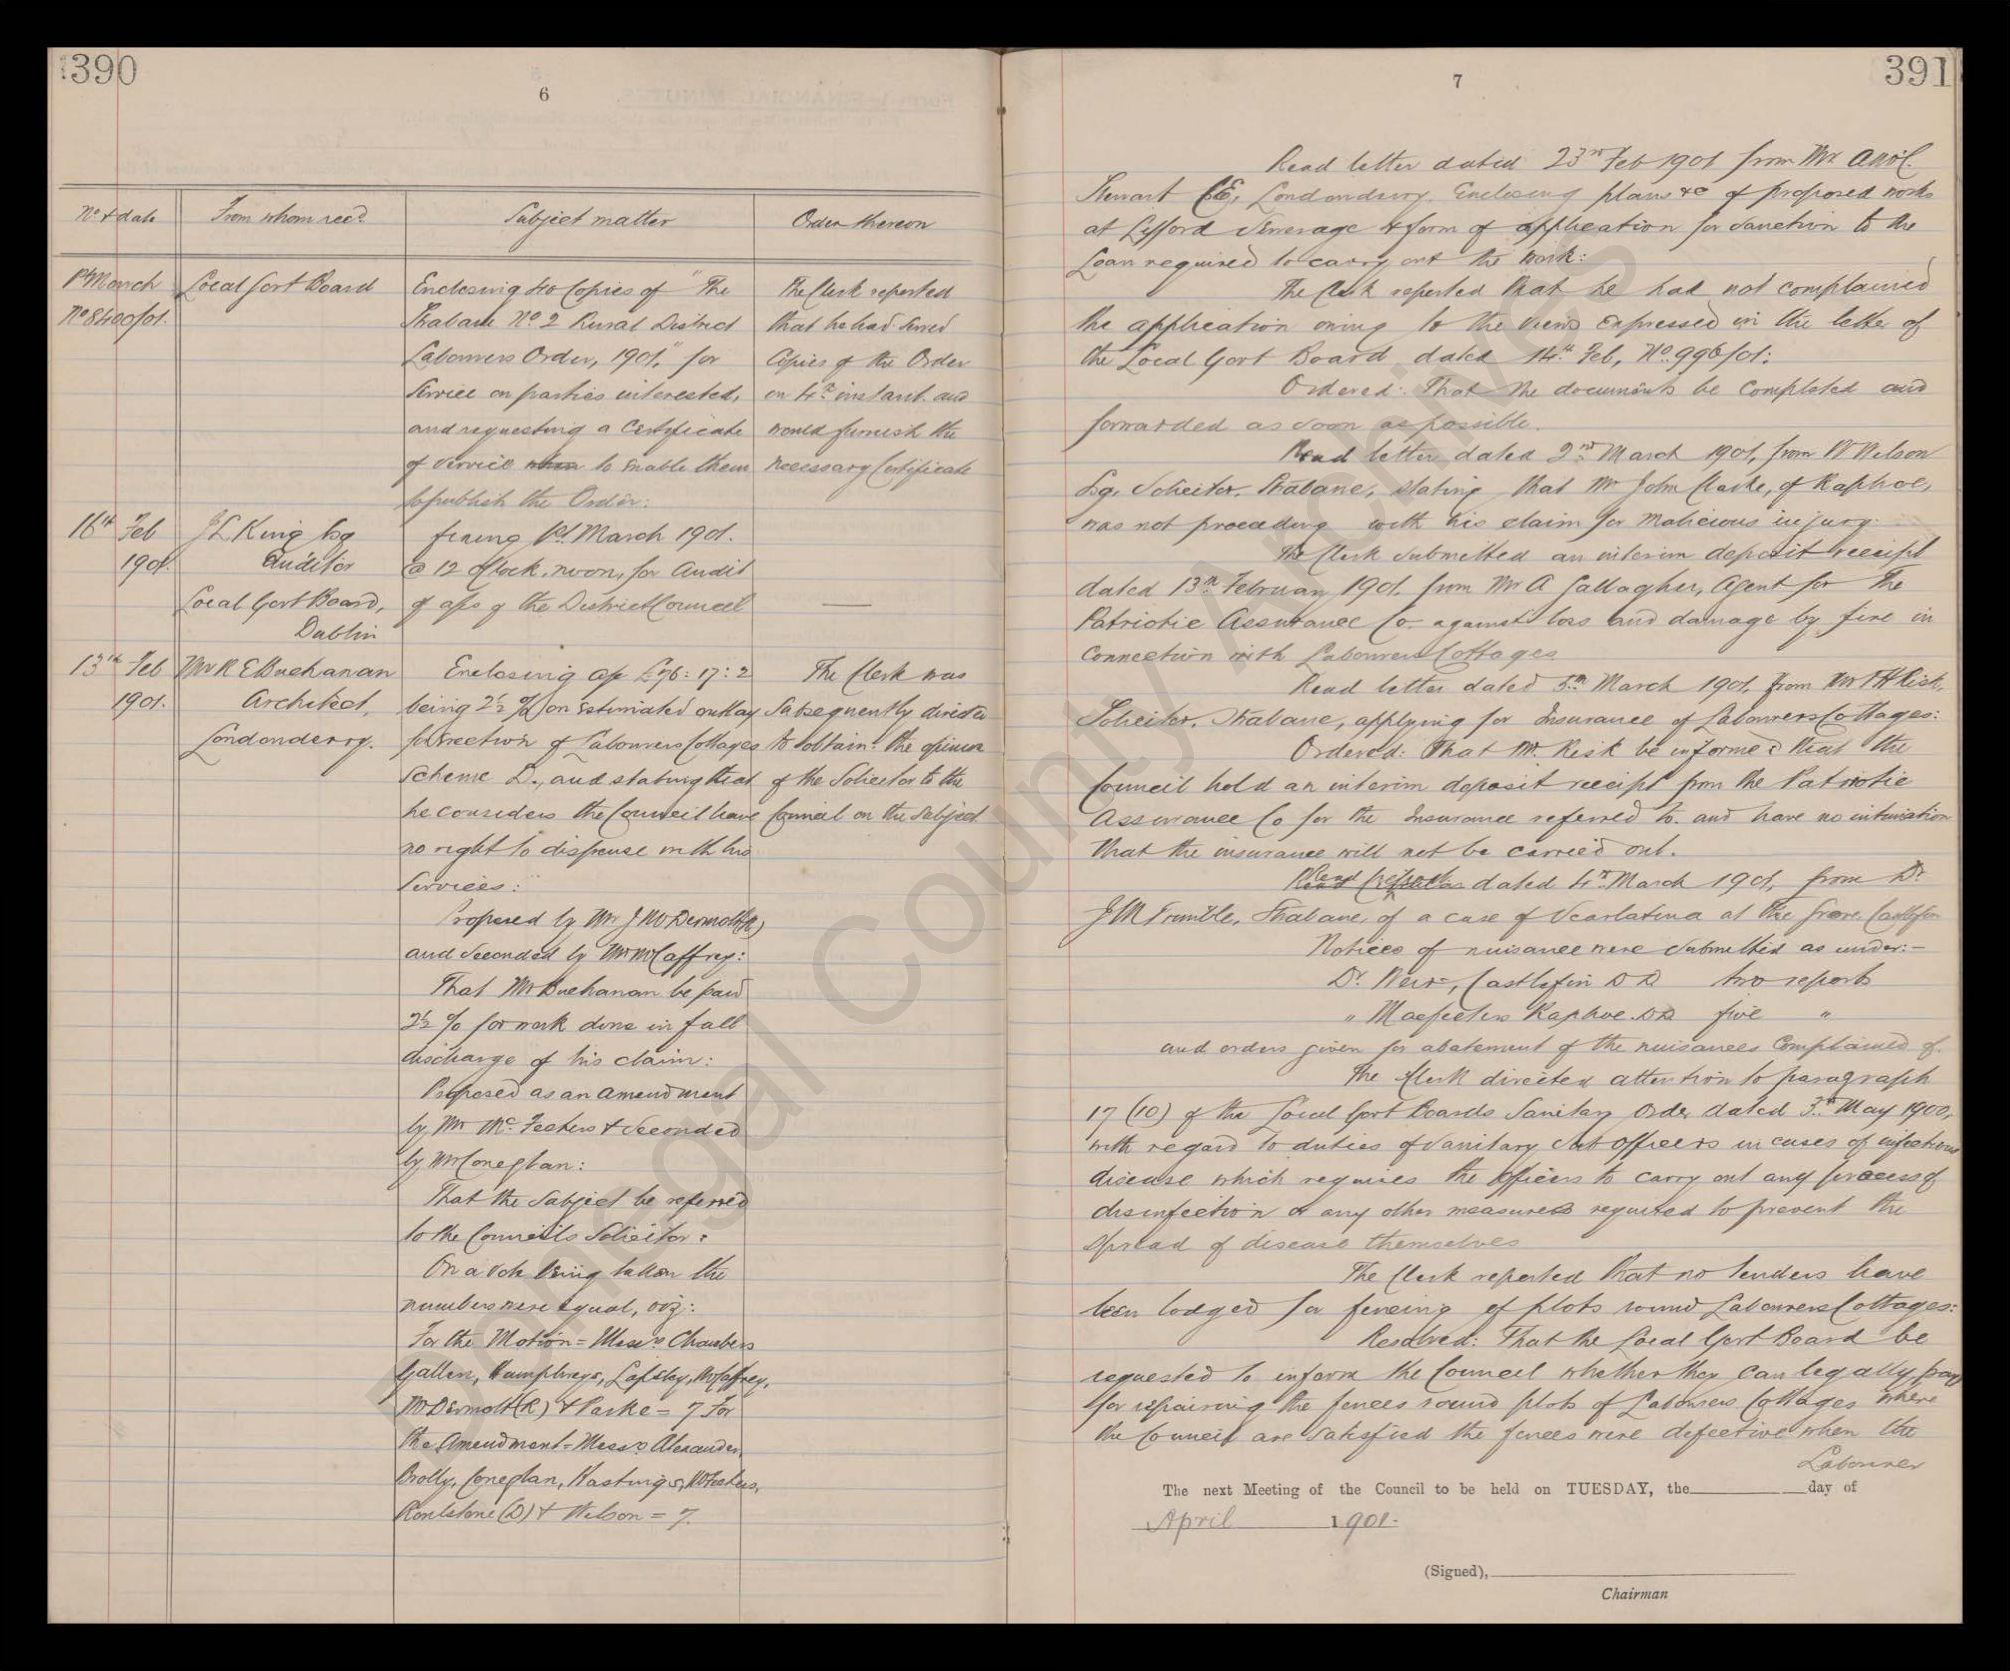 390
6
No & date
From whom recd.
Subject matter
Order thereon
1st March
No 8400/01.
Local Govt Board
Enclosing 40 Copies of "The
Strabane No. 2 Rural District
Labourers Order, 1901," for
Service on parties interested,
and requesting a Certificate
of service to enable them
to publish the Order:
The Clerk reported
that he had served
Copies of the Order
on 4th instant and
would furnish the
necessary Certificate
16th Feb
1901.
J L King Esq
Auditor
Local Govt Board,
Dublin
fixing 1st March 1901.
@ 12 o'clock, noon, for Audit
of a/cs of the District Council
13th Feb
1901.
Mr R E Buchanan
Architect,
Londonderry.
Enclosing a/c £76:17:2
being 2½ % on Estimated outlay
for erection of Labourers Cottages
Scheme D., and stating that
he considers the Council have
no right to dispense with his
Services:
The Clerk was
subsequently directed
to obtain the opinion
of the Solicitor to the
Council on the subject
Proposed by Mr J McDermott (R)
and Seconded by Mr McCaffrey:
That Mr Buchanan be paid
2½ % for work done in full
discharge of his claim:
Proposed as an amendment
by Mr McFeeters & Seconded
by Mr Coneghan:
That the Subject be referred
to the Councils Solicitor:
On a vote being taken the
numbers were equal, viz:
For the Motion = Messrs Chambers
Gallen, Humphreys, Lapsley, McCaffrey,
McDermott (R) & Parke = 7 For
the Amendment = Messrs Alexander,
Brolly, Coneghan, Hastings, McFeeters,
Roulstone (D) & Wilson = 7.
391
7
Read letter dated 23rd Feb 1901 from Mr
Stewart CE, Londonderry, Enclosing plans &c of proposed works
at Lifford Sewerage & form of application for Sanction to the
Loan required to carry out the work:
The Clerk reported that he had not completed
the application owing to the views expressed in the letter of
the Local Govt Board dated 14th Feb, No. 996/01:
Ordered: That the documents be completed and
forwarded as soon as possible.
Read letter dated 2nd March 1901, from W Wilson
Esq. Solicitor, Strabane, stating that Mr John Clarke, of Raphoe,
was not proceeding with his claim for Malicious injury:
The Clerk Submitted an interim deposit receipt
dated 13th February 1901, from Mr A Gallagher, Agent for The
Patriotic Assurance Co. against loss and damage by fire in
connection with Labourers Cottages
Read letter dated 5th March 1901, from Mr T H Risk,
Solicitor, Strabane, applying for Insurance of Labourers Cottages:
Ordered: That Mr Risk be informed that the
Council hold an interim deposit receipt from the Patriotic
Assurance Co for the Insurance referred to and have no intimation
that the insurance will not be carried out.
Read dated 4th March 1901, from Dr
J M Trumble, Strabane, of a case of Scarlatina at the Grove Castlefin
Notices of nuisance were Submitted as under:-
Dr. Weir, Castlefin DD two reports
" Macfeeters Raphoe DD five "
and orders given for abatement of the nuisances Complained of.
The Clerk directed attention to paragraph
17 (10) of the Local Govt Boards Sanitary Order dated 3rd May 1900,
with regard to duties of Sanitary Sub Officers in cases of infectious
disease which requires the Officers to carry out any process of
disinfection or any other measures required to prevent the
spread of disease themselves
The Clerk reported that no tenders have
been lodged for fencing of plots round Labourers Cottages:
Resolved: That the Local Govt Board be
requested to inform the Council whether they can legally pay
for repairing the fences round plots of Labourers Cottages where
the Council are Satisfied the fences were defective when the
Labourer
The next Meeting of the Council to be held on TUESDAY, the day of
April 1901.
(Signed),
Chairman
Donegal County Archives